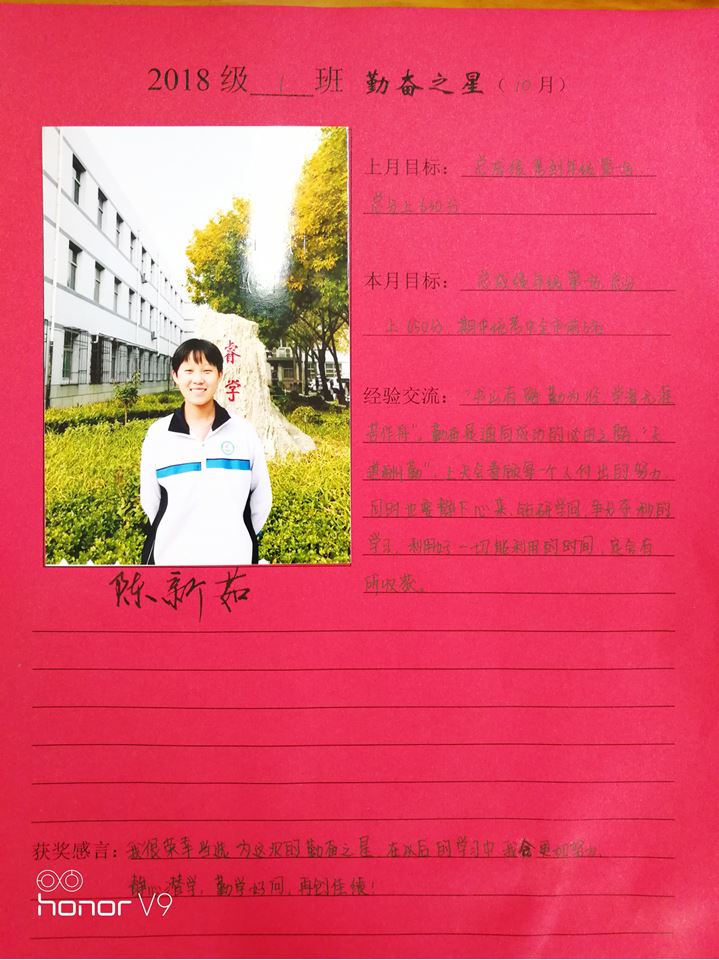 2018级 1 班 勤奋之星（10月）
上月目标：总成绩考到年级第
总分上630分
本月目标：总成绩年级第九 总分
上650分；期中统考中全市前
睿
学
经验交流："书山有路勤为径，学海无涯
苦作舟"，勤奋是通向成功的必由之路，"天
道酬勤"，上天会眷顾每一个人付出的努力，
同时也要静下心来，钻研学问，争分夺秒的
学习，利用好一切能利用的时间，总会有
所收获。
陈新茹
获奖感言：我很荣幸当选为这次的勤奋之星，在以后的学习中我会更加努力，
静心潜学，勤学好问，再创佳绩！
honor V9